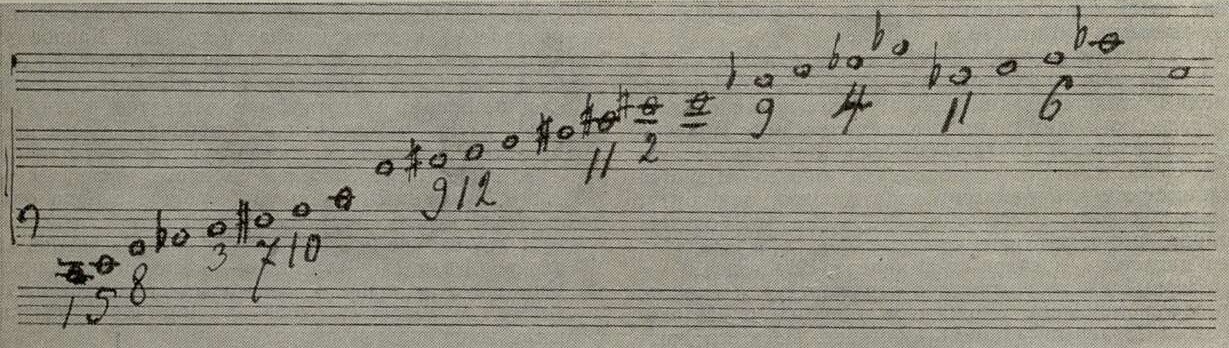 1 5 8 3 7 10 9 12 11 2 9 4 11 6